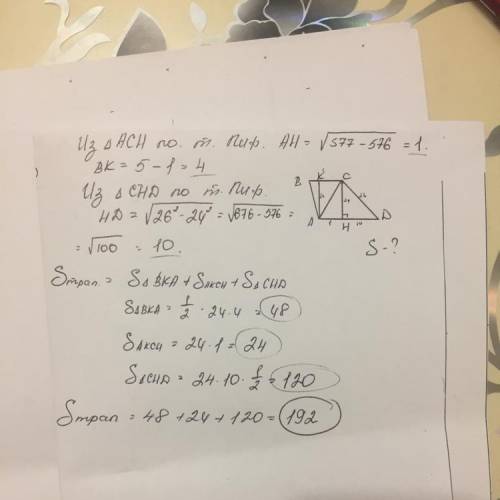 Из △ACH по т. Пиф. AH = √577-576 = 1.
BK = 5-1 = 4
Из △CHD по т. Пиф.
HD = √26²-24² = √676-576 =
= √100 = 10.
B K C
A H D
S-?
Sтрап. = S△BKA + SAKCH + S△CHD
S△BKA = 1/2 · 24 · 4 = 48
SAKCH = 24 · 1 = 24
S△CHD = 24 · 10 · 1/2 = 120
Sтрап = 48 + 24 + 120 = 192